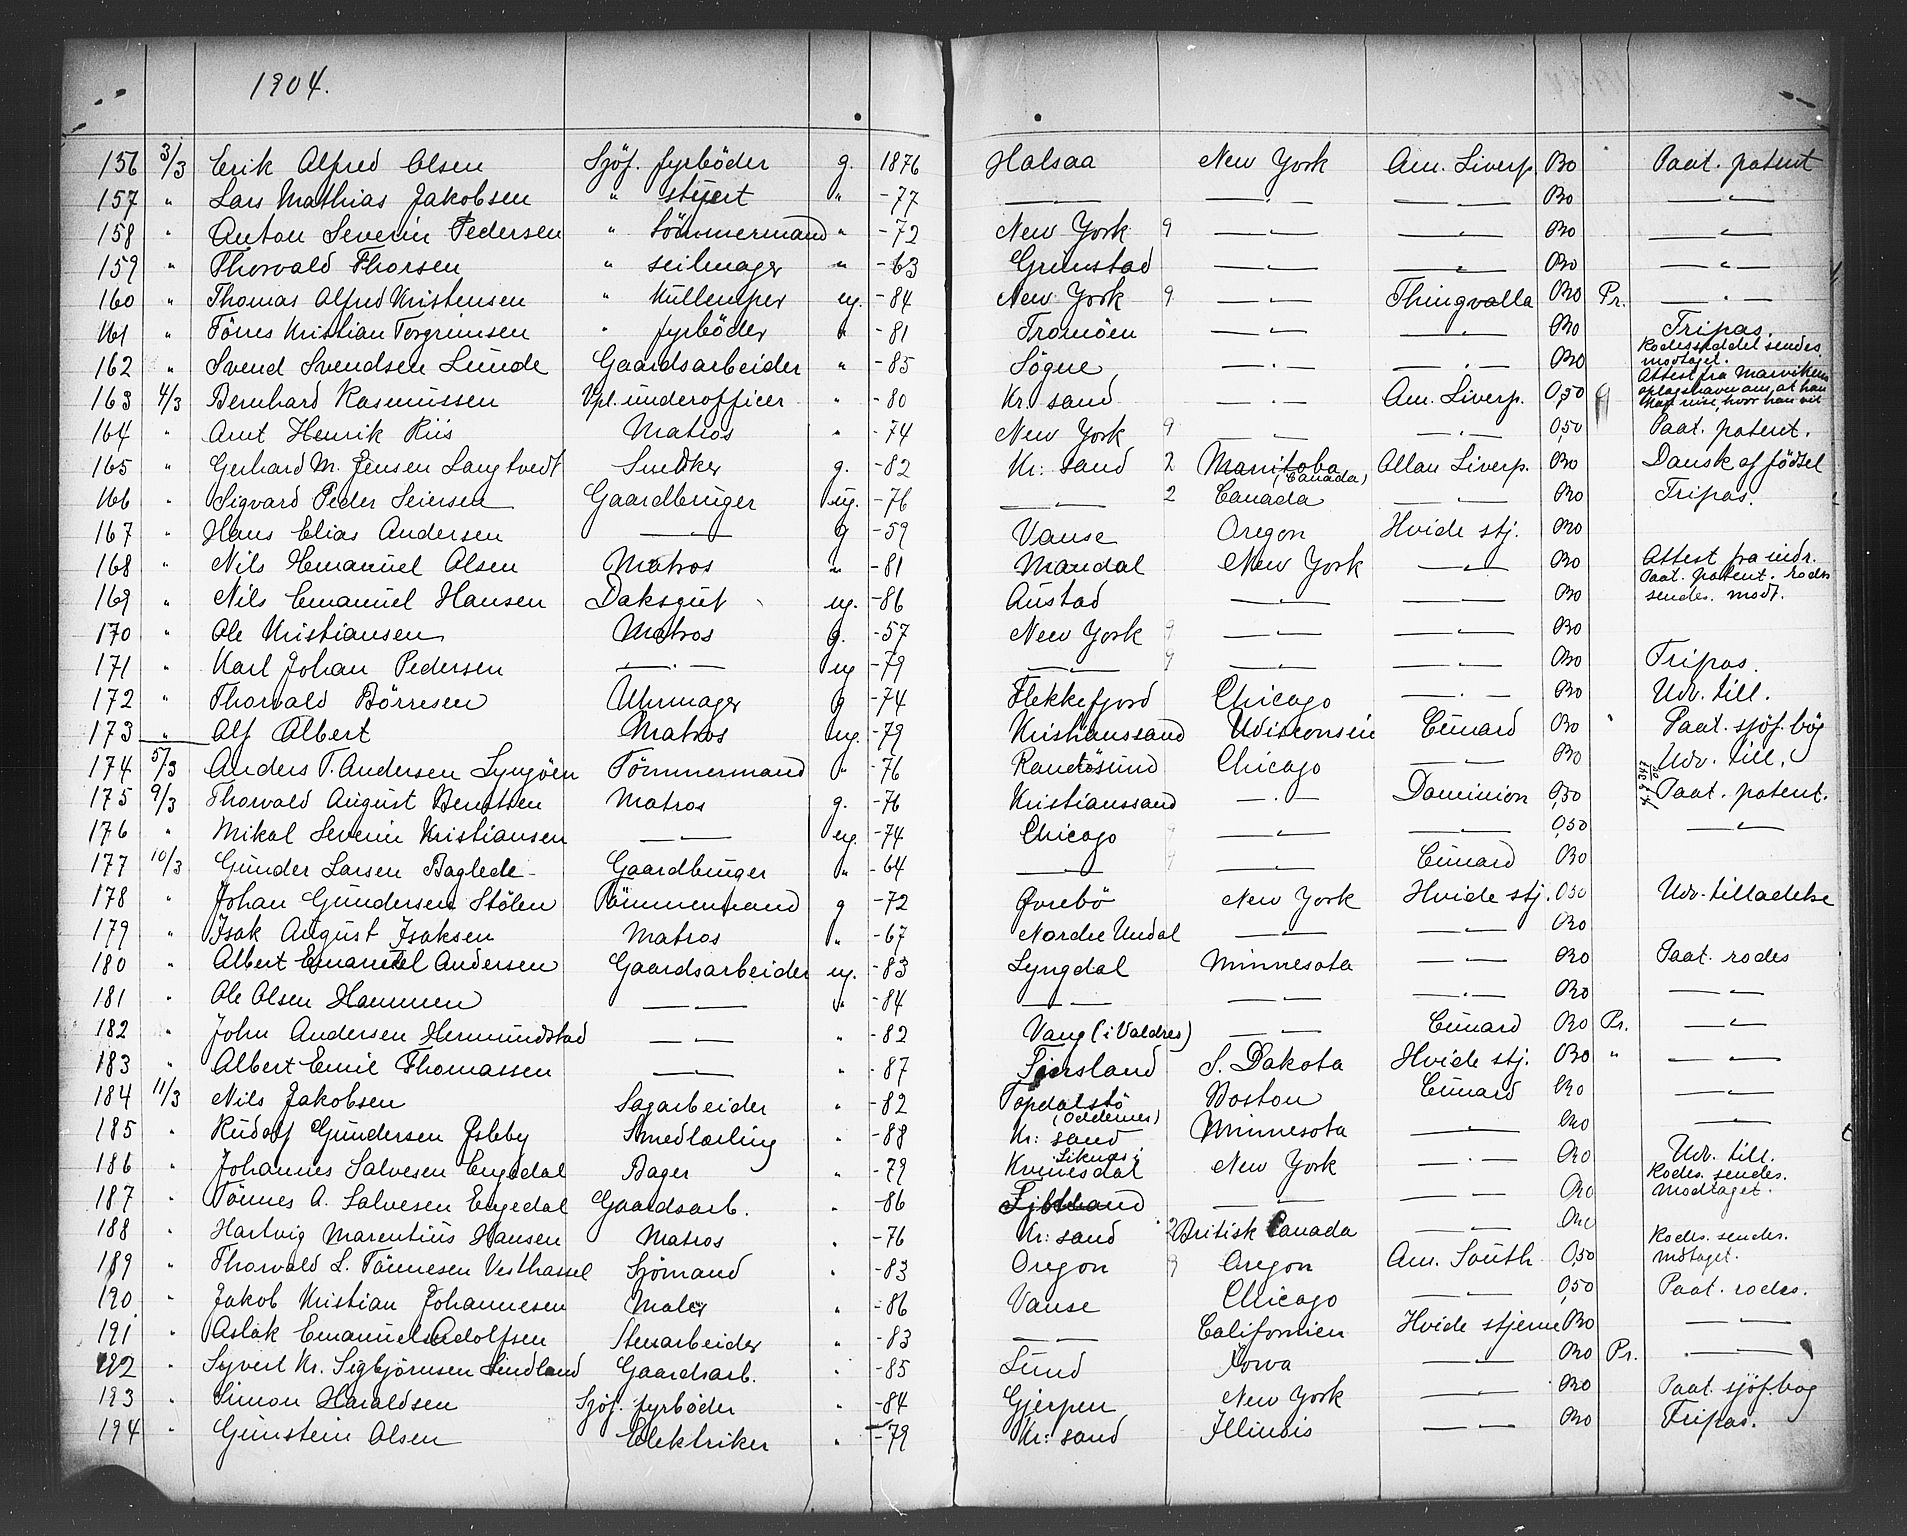 1904.
156 3/3 Erik Alfred Olsen Sjöf. fyrböder g. 1876 Halsaa New York Am. Liverp. Bro Paat. patent
157 " Lars Mathias Jakobsen " stuert " -77 —"— —"— —"— Bro —"—
158 " Anton Severin Pedersen " tömmermand " -72 New York 9 —"— —"— Bro —"—
159 " Thorvald Thorsen " seilmager " -63 Grimstad —"— —"— Bro —"—
160 " Thomas Alfred Kristensen " kullemper ug. -84 New York 9 —"— Thingvalla Bro Pr. —"—
161 " Tönnes Kristian Torgrimsen " fyrböder " -81 Tromöen —"— —"— Bro Tripas.
162 " Svend Svendsen Lunde Gaardsarbeider " -85 Sögne —"— —"— Bro Rodesseddel sendes modtaget.
163 4/3 Bernhard Rasmussen Vpl. underofficer " -80 Kr. sand —"— Am. Liverp. 0,50 Attest fra Marvikens oplagshavn om, at han kan reise, hvor han vil
164 " Arnt Henrik Riis Matros " -74 New York 9 —"— —"— 0,50 Paat. patent.
165 " Gerhard M. Jensen Langtvedt Snedker g. -82 Kr: sand 2 Manitoba (Canada) Allan Liverp. Bro Dansk af födsel
166 " Sigvard Peder Seiersen Gaardbruger ug. -76 —"— 2 Canada —"— Bro Tripas.
167 " Hans Elias Andersen —"— g -59 Vanse Oregon Hvide stj. Bro
168 " Nils Emanuel Olsen Matros " -81 Mandal New York —"— Bro Attest fra indr.
169 " Nils Emanuel Hansen Daksgut ug. -86 Austad —"— —"— Bro Paat. patent. rodes sendes. modt.
170 " Ole Kristiansen Matros g. -57 New York 9 —"— —"— Bro
171 " Karl Johan Pedersen —"— ug -79 —"— 9 —"— —"— Bro Tripas.
172 " Thorvald Börresen Uhrmager g -74 Flekkefjord Chicago —"— Bro Udv. till.
173 " Alf Albert Matros ug. -79 Kristianssand Wisconsin Cunard Bro " Paat. sjöf. bog
174 5/3 Anders T. Andersen Lyngöen Tömmermand " -76 Randösund Chicago —"— Bro Udv. till.
175 9/3 Thorvald August Berntsen Matros g. -76 Kristianssand —"— Dominion 0,50 Paat. patent.
176 " Mikal Severin Kristiansen —"— ug. -74 Chicago 9 —"— —"— 0,50 —"—
177 10/3 Gunder Larsen Baglede Gaardbruger " -64 —"— 9 —"— Cunard Bro
178 " Johan Gundersen Stölen Tömmermand g -72 Övrebö New York Hvide stj. 0,50 Udv. tilladelse
179 " Isak August Isaksen Matros " -67 Nordre Undal —"— —"— Bro
180 " Albert Emanuel Andersen Gaardsarbeider ug. -83 Lyngdal Minnesota —"— Bro Paat. rodes
181 " Ole Olsen Hammen —"— " -84 —"— —"— —"— Bro —"—
182 " John Andersen Hermundstad —"— " -82 Vang (i Valdres) —"— Cunard Bro Pr. —"—
183 " Albert Emil Thomassen —"— " -87 Fjersland S. Dakota Hvide stj. Bro " —"—
184 11/3 Nils Jakobsen Sagarbeider " -82 Topdalstö (Oddernes) Boston Cunard Bro —"—
185 " Rudolf Gundersen Isleby Smedlærling " -88 Kr: sand Minnesota —"— Bro —"—
186 " Johannes Salvesen Engedal Bager " -79 Liknes i Kvinesdal New York —"— Bro Udv. till.
187 " Tönnes A. Salvesen Engedal Gaardsarb. " -86 Fjotland —"— —"— Bro Rodes. sendes. Modtaget.
188 " Hartvig Marentius Hansen Matros " -76 Kr: sand 2 Britisk Canada —"— Bro
189 " Thorvald L. Tönnesen Vesthassel Sjömand " -83 Oregon 9 Oregon Am. South 0,50 Rodes. sendes. Mdtaget.
190 " Jakob Kristian Johannesen Maler " -86 Vanse Chicago —"— 0,50 Paat. rodes.
191 " Aslak Emanuel Adolfsen Stenarbeider " -83 —"— Californien Hvide stjerne Bro —"—
192 " Syvert Kr. Sigbjörnsen Lindland Gaardsarb. " -85 Lund Iowa —"— Bro Pr. —"—
193 " Simon Haraldsen Sjöf. fyrböder " -84 Gjerpen New York —"— Bro Paat. sjöf. bog
194 " Gunstein Olsen Elektriker " -79 Kr: sand Illinois —"— Bro Tripas.